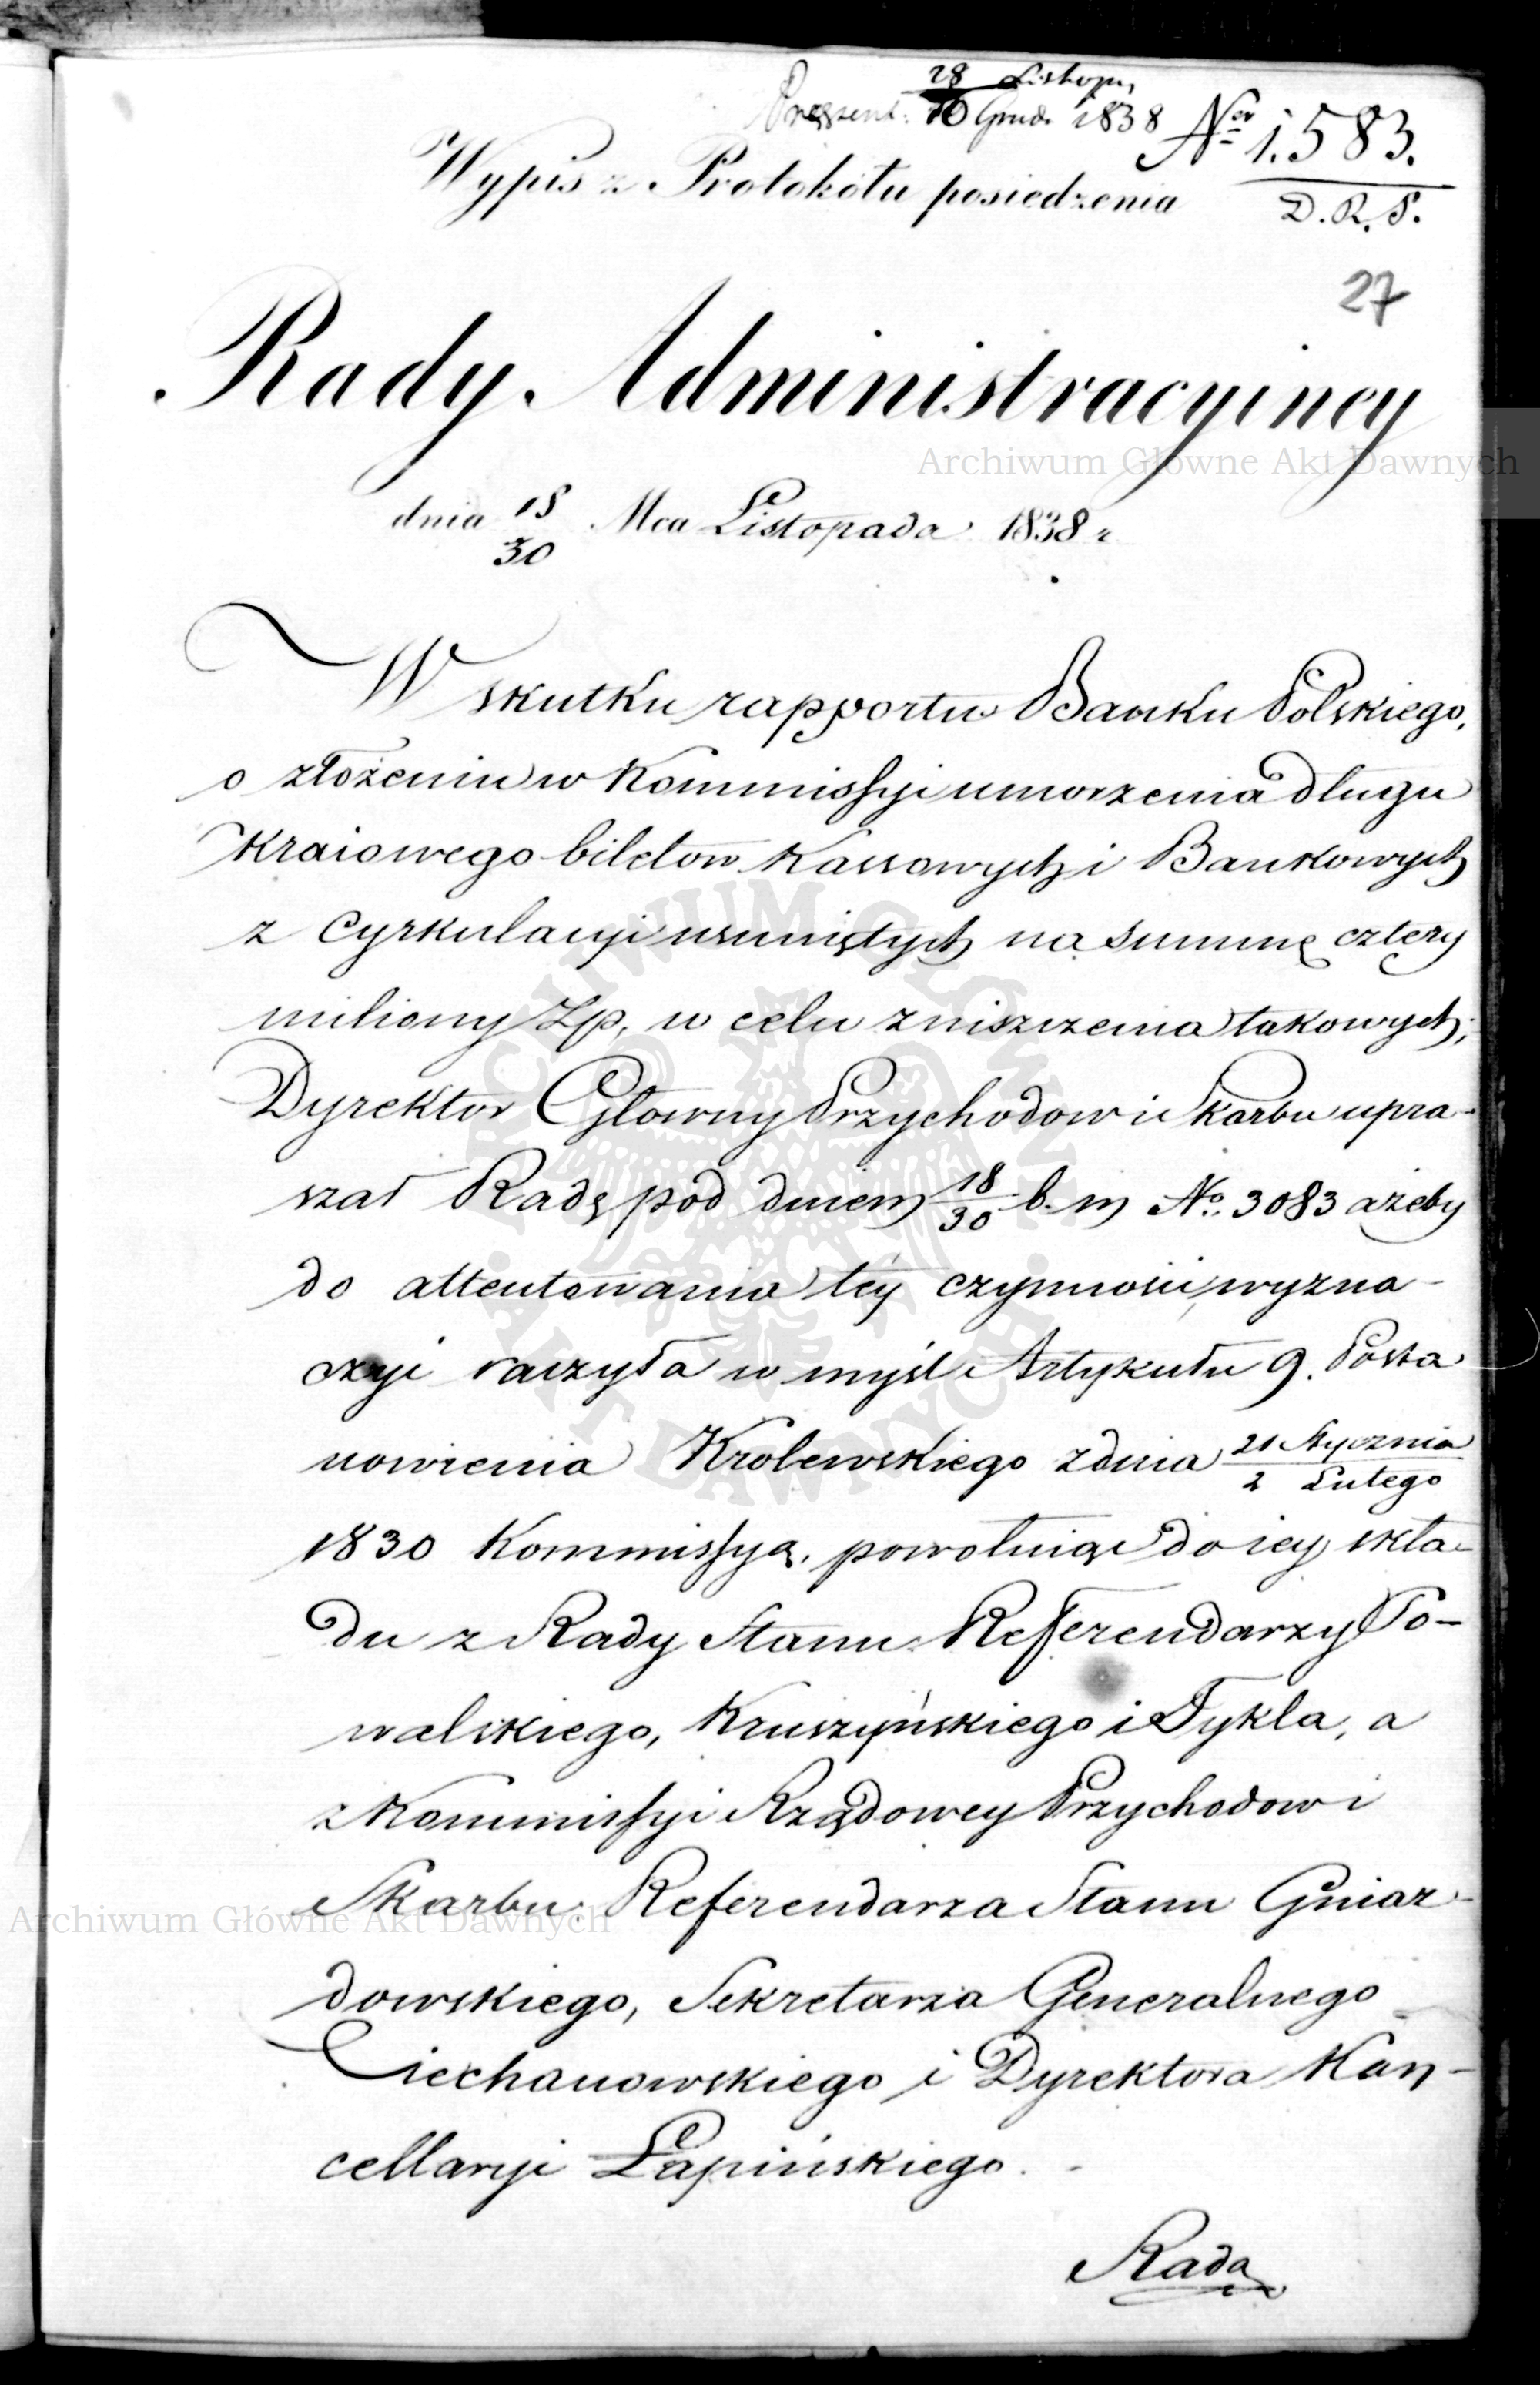 28 Listop.
Prezent: 10 Grud. 1838 Nor 1.583.
Wypis z Protokółu posiedzenia D. R. P.
27
Rady Administracyiney
Archiwum Główne Akt Dawnych
dnia 18/30 Mca Listopada 1838 r
W skutku rapportu Banku Polskiego,
o złożeniu w Kommissyi umorzenia długu
Kraiowego biletow Kassowych i Bankowych
z cyrkulacyi usuniętych na summę cztery
miliony Zp, w celu zniszczenia takowych;
Dyrektor Głowny Przychodow i Skarbu upra-
szał Radę pod dniem 18/30 b. m No. 3083 ażeby
do attentowania téy czynności, wyzna-
czyć raczyła w myśl Artykułu 9. Posta
nowienia Krolewskiego z dnia 21 Stycznia / 2 Lutego
1830 Kommissyą, powołuiąc do iey skła-
du z Rady Stanu Referendarzy Po-
walskiego, Kruszyńskiego i Tykla, a
z Kommissyi Rządowey Przychodow i
Skarbu: Referendarza Stanu Gniaz-
Archiwum Główne Akt Dawnych
dowskiego, Sekretarza Generalnego
Ciechanowskiego i Dyrektora Kan-
cellaryi Łapińskiego.
Rada
ARCHIWUM GŁÓWNE AKT DAWNYCH